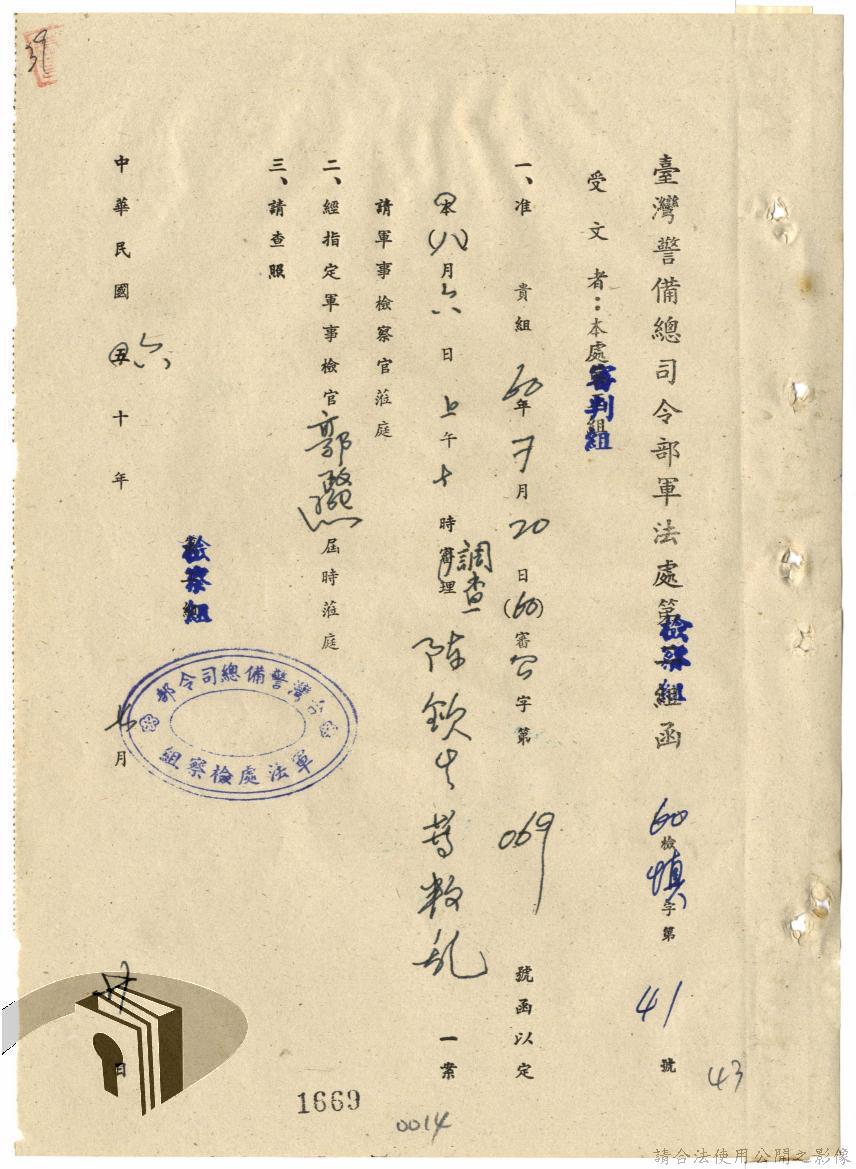 39
臺灣警備總司令部軍法處檢察組函
60檢慎字第41號
受文者：本處審判組
一、准貴組60年7月20日(60)審字第069號函以定
本(八)月六日上午十時調查審理陳欽生等叛乱一案
請軍事檢察官蒞庭
二、經指定軍事檢官郭屆時蒞庭
三、請查照
檢察組
台灣警備總司令部
軍法處檢察組
中華民國五六十年七月日
43
1669
0014
請合法使用公開之影像